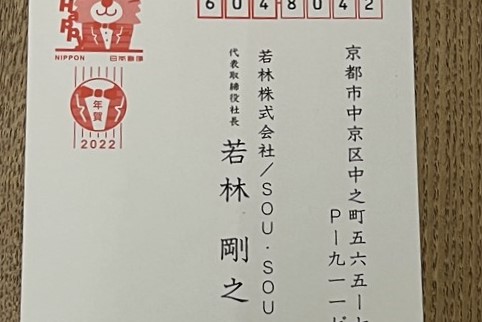 6048042
京都市中京区中之町五六五ー
P一九一一ビ
若林株式会社/SOU・SOU
代表取締役社長
若林 剛之
NIPPON 日本郵便
年賀
2022